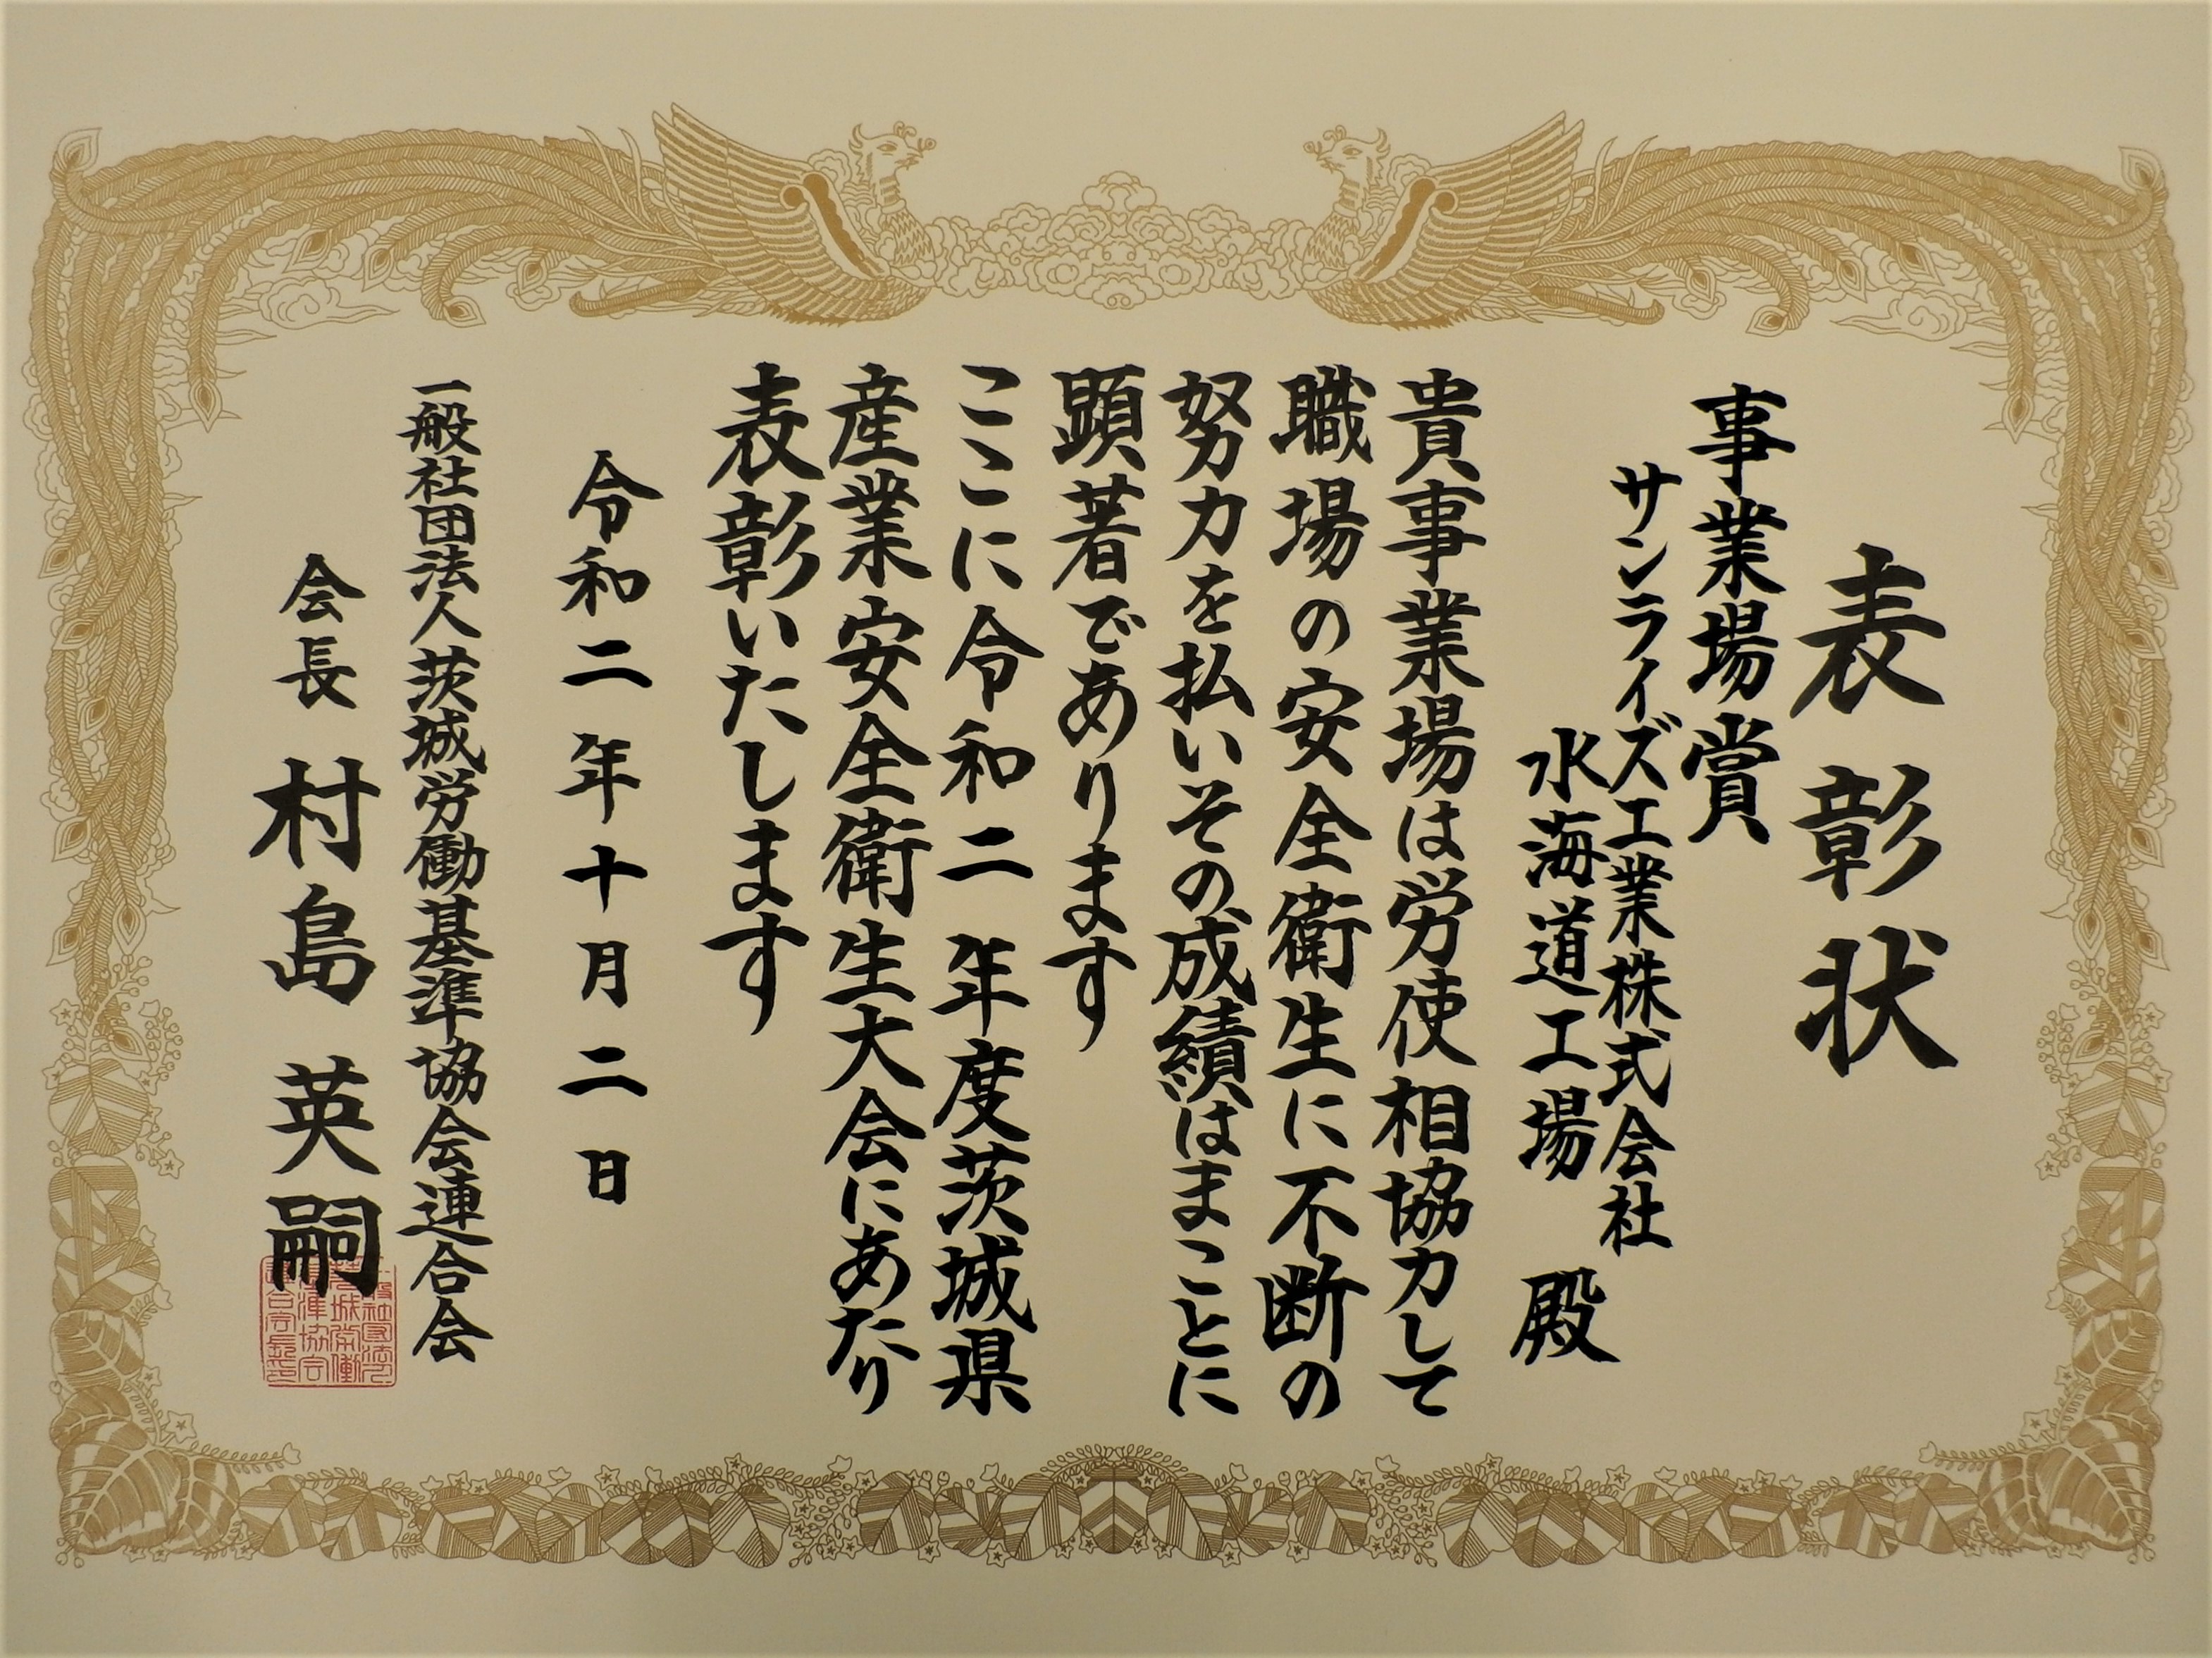 表彰状
事業場賞
サンライズ工業株式会社
水海道工場 殿
貴事業場は労使相協力して
職場の安全衛生に不断の
努力を払いその成績はまことに
顕著であります
ここに令和二年度茨城県
産業安全衛生大会にあたり
表彰いたします
令和二年十月二日
一般社団法人茨城労働基準協会連合会
会長 村島英嗣